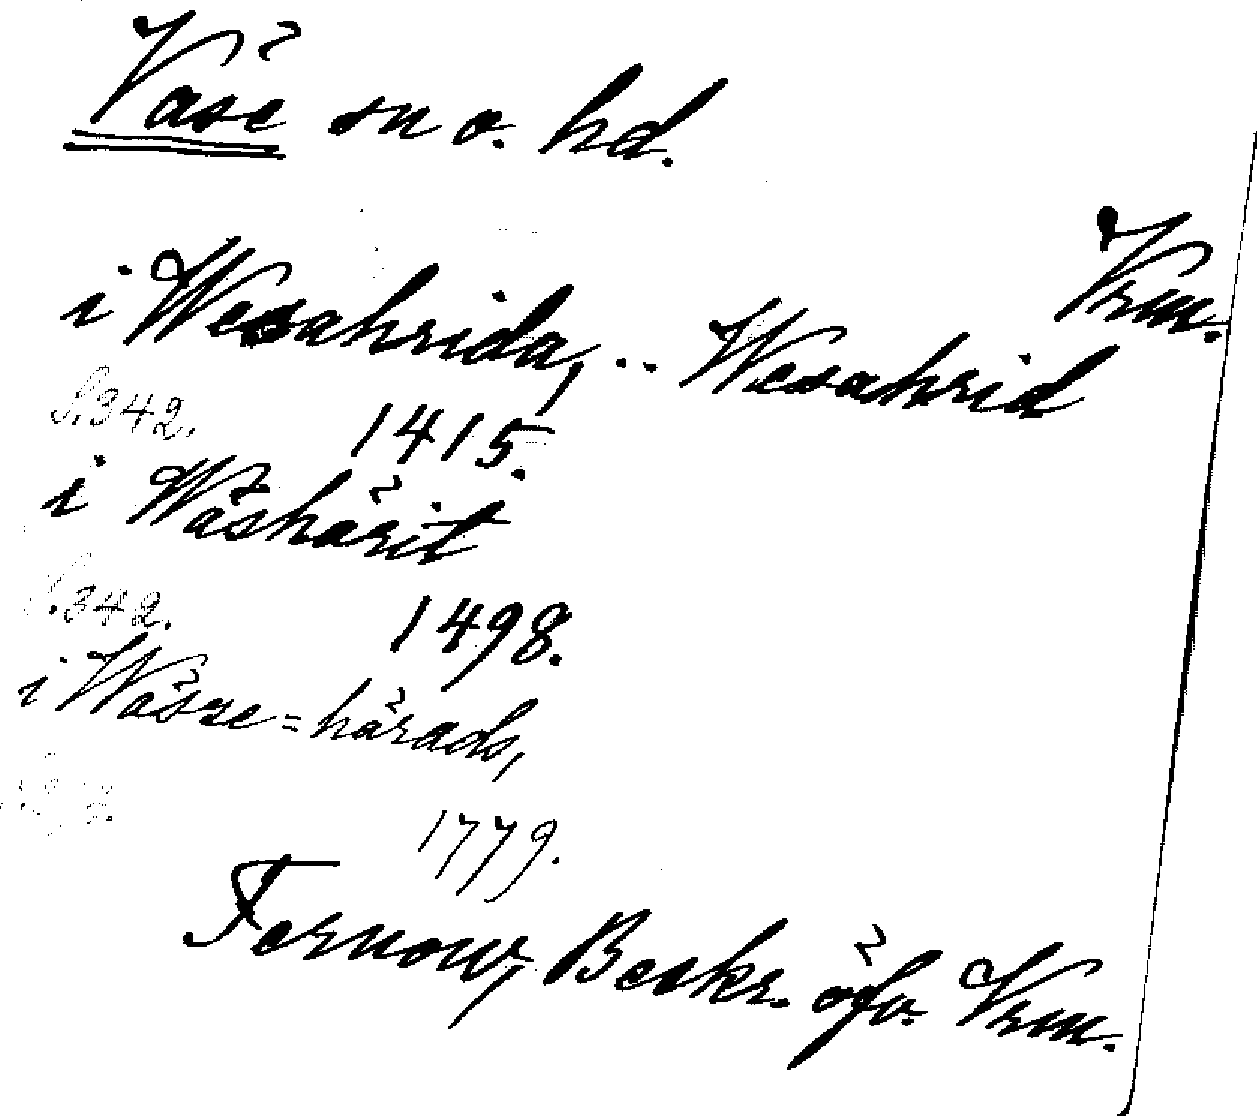 Väse sn o. hd.
Vrm.
i Wesahrida, .. Wesahrid
S. 342. 1415.
i Wäshärit
S. 342. 1498.
i Wäsze=härads,
1779.
Fernow, Beskr. öfv. Vrm.